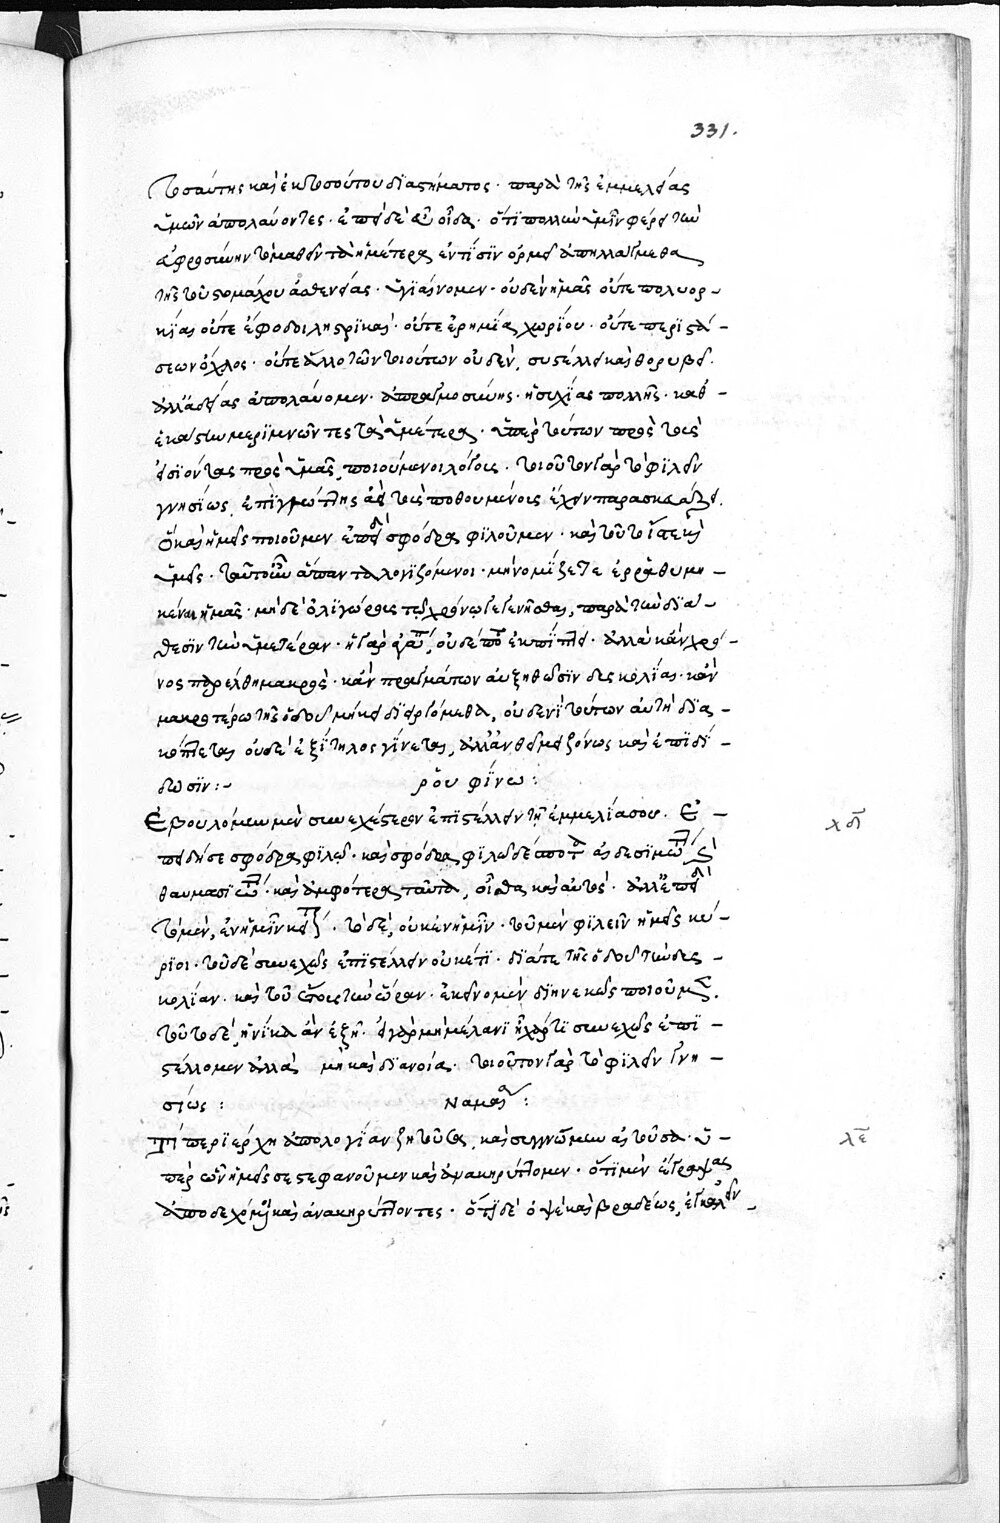 331.
τοσαύτης καὶ ἐκ τοσούτου διαστήματος· παρὰ τῆς ἐμμελείας
ὑμῶν ἀπολαύοντες· ἐπειδὲ εὖ οἶδα· ὅτι πολλὴν ὑμῖν φέρει τὴν
εὐφροσύνην τὸ μαθεῖν τὰ ἡμέτερα ἐν τίσιν ὁρμεῖ ἀπηλλάγμεθα
τῆς τοῦ στομάχου ἀσθενείας· ὑγιαίνομεν· οὐδὲν ἡμᾶς οὔτε πολιορ-
κίας οὔτε ἔφοδοι ληστρικαὶ· οὔτε ἐρημία χωρίου· οὔτε περιστά-
σεων ὄχλος· οὔτε ἄλλο τῶν τοιούτων οὐδὲν, συστέλλει καὶ θορυβεῖ·
ἀλλ' ἀδείας ἀπολαύομεν· ἀπραγμοσύνης· ἡσυχίας πολλῆς· καθ'
ἑκάστην μεριμνῶντες τὰ ὑμέτερα· ὑπὲρ τούτων πρὸς τοὺς
εἰσιόντας πρὸς ὑμᾶς ποιούμενοι λόγους· τοιοῦτον γὰρ τὸ φιλεῖν
γνησίως ἐπὶ γλώττης ἀεὶ τοὺς ποθουμένους ἔχειν παρασκευάζει.
ὃ καὶ ἡμεῖς ποιοῦμεν ἐπειδὴ σφόδρα φιλοῦμεν· καὶ τοῦτο ἴστε καὶ
ὑμεῖς· ταῦτ' οὖν ἅπαντα λογιζόμενοι· μὴ νομίζετε ἐρραθυμη-
κέναι ἡμᾶς· μηδὲ ὀλιγώρους τῷ χρόνῳ γεγενῆσθαι, παρὰ τὴν διά-
θεσιν τὴν ὑμετέραν· ἡ γὰρ ἀγάπη, οὐδέποτε ἐκπίπτει· ἀλλὰ κἂν χρό-
νος παρέλθῃ μακρὸς· κἂν πραγμάτων αὐξηθῶσιν δυσκολίαι· κἂν
μακροτέρω τῆς ὁδοῦ μήκει διειργόμεθα, οὐδενὶ τούτων αὐτὴ δια-
κόπτεται οὐδὲ ἐξίτηλος γίνεται, ἀλλ' ἀνθεῖ μειζόνως καὶ ἐπιδί-
δωσιν:-
ρουφίνω:
Ἐβουλόμην μὲν συνεχέστερον ἐπιστέλλειν τῇ ἐμμελίᾳ σου· ἐ-
πειδή σε σφόδρα φιλῶ· καὶ σφόδρα φιλῶ δέσποτά αἰδεσιμώτατε καὶ
θαυμασιώτατε· καὶ ἀμφότερα ταῦτα, οἶσθα καὶ αὐτὸς· ἀλλ' ἐπειδὴ
τὸ μὲν, ἐν ἡμῖν κεῖται· τὸ δὲ, οὐκ ἐν ἡμῖν· τοῦ μὲν φιλεῖν ἡμεῖς κύ-
ριοι· τοῦ δὲ συνεχῶς ἐπιστέλλειν οὐκέτι· διά τε τῆς ὁδοῦ τὴν δυσ-
κολίαν· καὶ τοῦ ἔτους τὴν ὥραν· ἐκεῖνο μὲν διηνεκῶς ποιοῦμεν.
τοῦτο δὲ, ἡνίκα ἂν ἐξῇ· εἰ γὰρ μὴ μέλανι ἢ χάρτι συνεχῶς ἐπι-
στέλλομεν ἀλλὰ μὴν καὶ διανοίᾳ· τοιοῦτον γὰρ τὸ φιλεῖν γνη-
σίως:
Ναμαία:
Τί περιέρχῃ ἀπολογίαν ζητοῦσα, καὶ συγγνώμην αἰτοῦσα· ὑ-
πὲρ ὧν ἡμεῖς σε στεφανοῦμεν καὶ ἀνακηρύττομεν· ὅτι μὲν ἔγραψας
ἀποδεχόμενοι καὶ ἀνακηρύττοντες· ὅτι δὲ ὀψὲ καὶ βραδέως, ἐγκαλεῖν
λδ
λε